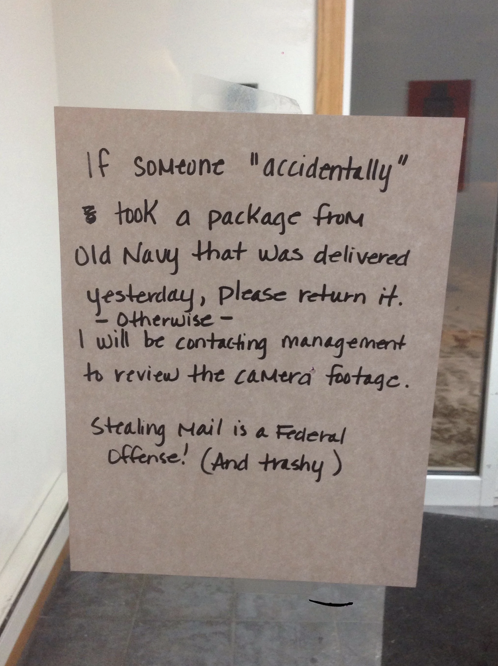 If someone "accidentally"
took a package from
Old Navy that was delivered
yesterday, please return it.
- Otherwise -
I will be contacting management
to review the camera footage.
Stealing Mail is a Federal
Offense! (And trashy)